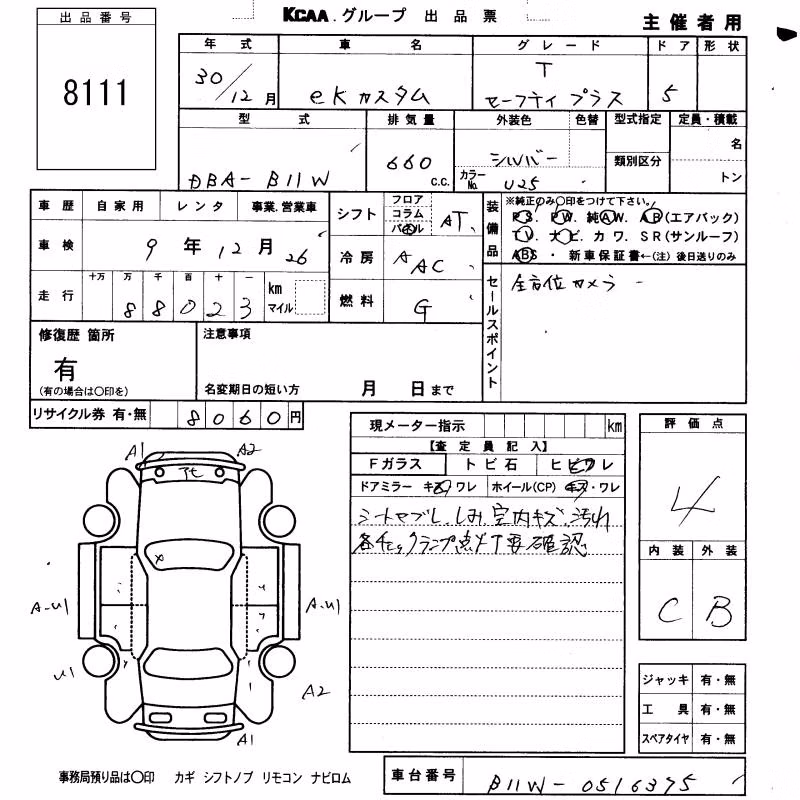 出品番号
8111
KCAA.グループ 出品票
主催者用
年式 車名 グレード ドア 形状
30/12月 eKカスタム T セーフティ プラス 5
型式 排気量 外装色 色替 型式指定 定員・積載
DBA-B11W 660 c.c. シルバー カラーNo. U25 類別区分 名 トン
車歴 自家用 レンタ 事業.営業車
車検 9年12月26
走行 十万 万 千 百 十 一 km マイル
88023
シフト フロア コラム パネル AT
冷房 AAC
燃料 G
装備品
※純正のみ○印をつけて下さい。
PS. PW. 純AW. AB(エアバック)
TV. ナビ. カワ. SR(サンルーフ)
ABS ・ 新車保証書←(注)後日送りのみ
セールスポイント
全方位カメラ
修復歴 箇所
有
(有の場合は○印を)
注意事項
名変期日の短い方 月 日まで
リサイクル券 有・無 8060円
現メーター指示 km
【査定員記入】
Fガラス トビ石 ヒビワレ
ドアミラー キズワレ ホイール(CP) キズ・ワレ
シートヤブレ.しみ.室内キズ.汚れ
評価点
4
内装 外装
C B
ジャッキ 有・無
工具 有・無
スペアタイヤ 有・無
A1 A2
アモ
X
A-U1 A-U1
U1 A2
A1
事務局預り品は○印 カギ シフトノブ リモコン ナビロム
車台番号 B11W-0516375